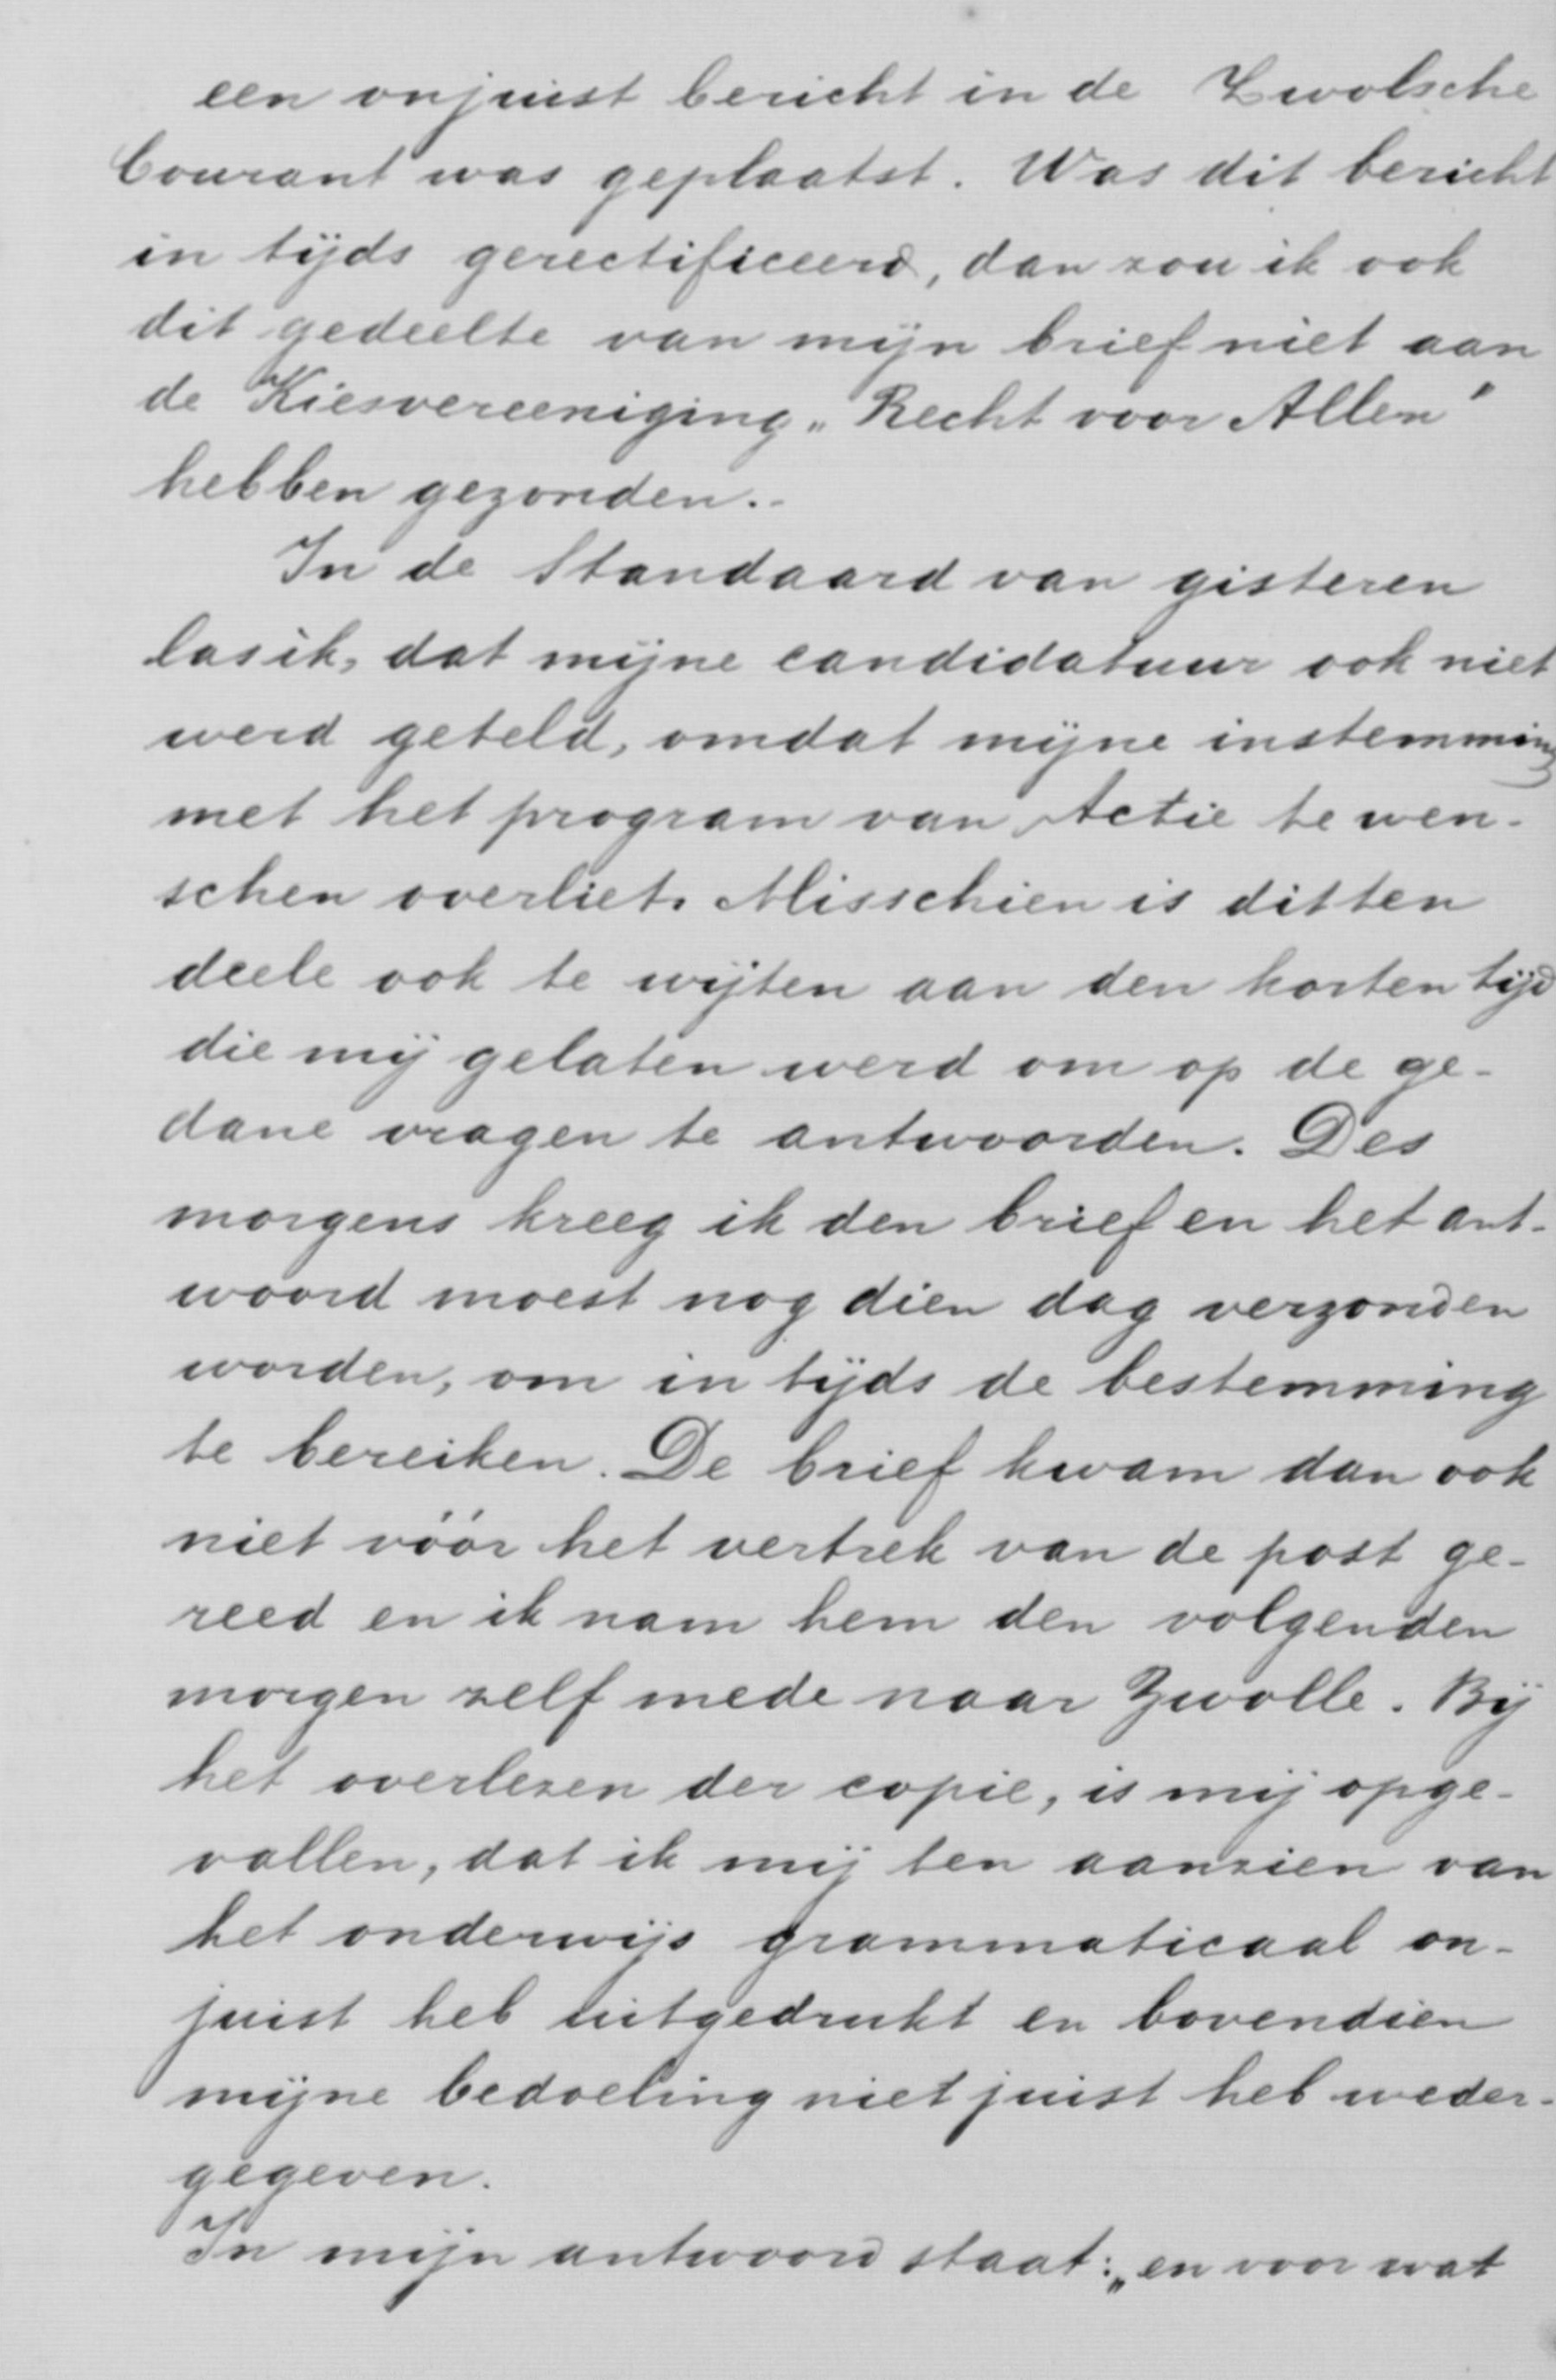 een onjuist bericht in de Zwolsche
Courant was geplaatst. Was dit bericht
in tijds gerectificeerd, dan zou ik ook
dit gedeelte van mijn brief niet aan
de Kiesvereeniging „Recht voor Allen"
hebben gezonden.-
In de Standaard van gisteren
las ik, dat mijne candidatuur ook niet
werd geteld, omdat mijne instemming
met het program van Actie te wen-
schen overliet. Misschien is dit ten
deele ook te wijten aan den korten tijd
die mij gelaten werd om op de ge-
dane vragen te antwoorden. Des
morgens kreeg ik den brief en het ant-
woord moest nog dien dag verzonden
worden, om in tijds de bestemming
te bereiken. De brief kwam dan ook
niet vóór het vertrek van de post ge-
reed en ik nam hem den volgenden
morgen zelf mede naar Zwolle. Bij
het overlezen der copie, is mij opge-
vallen, dat ik mij ten aanzien van
het onderwijs grammaticaal on-
juist heb uitgedrukt en bovendien
mijne bedoeling niet juist heb weder-
gegeven.
In mijn antwoord staat: „en voor wat